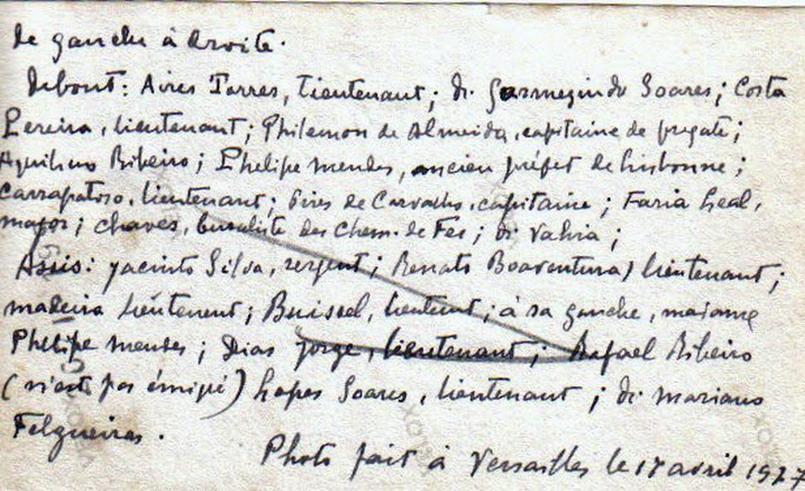 de gauche à droite.
Debout: Aires Torres, Lieutenant; dr. Gurmezindo Soares; Costa
Pereira, lieutenant; Philemon de Almeida, capitaine de fregate;
Aquilino Ribeiro; Phelipe Mendes, ancien préfet de Lisbonne;
Carrapatoso, lieutenant; Pires de Carvalho, capitaine; Faria Leal,
major; Chaves, buraliste des Chem. de Fer; dr.
Assis: Jacinto Silva, sergent; Renato Boaventura) lieutenant;
madeira lieutenent; Buissel, lieutent; à sa gauche, madame
Phelipe Mendes; Dias Jorge, lieutenant; Rafael Ribeiro
(n'est pas émigé) Lopes Soares, lieutenant; dr. Mariano
Felgueiras.
Photo fait à Versailles le 17 avril 1927